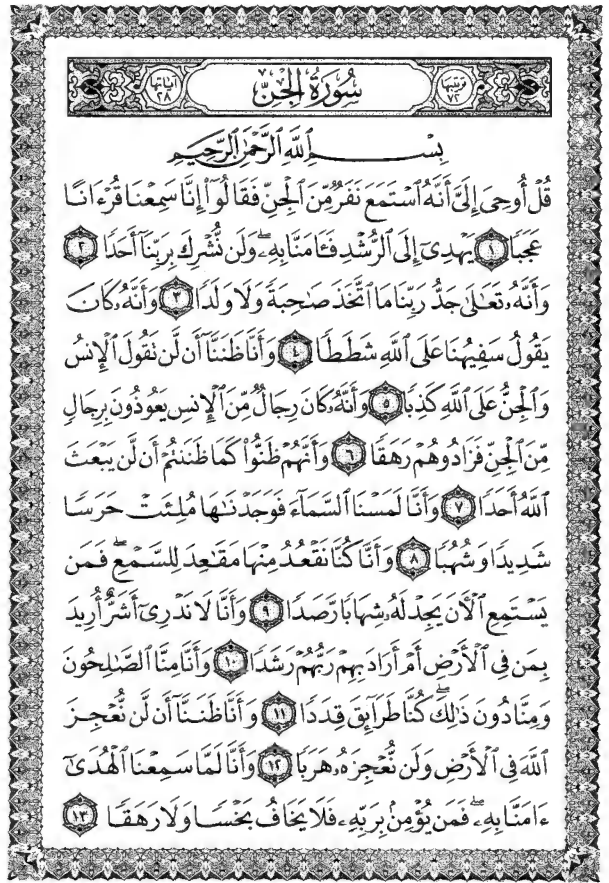 ترتيبها ٧٢ سُورَةُ الجِنّ آياتها ٢٨
بِسْمِ ٱللَّهِ ٱلرَّحْمَٰنِ ٱلرَّحِيمِ
قُلْ أُوحِىَ إِلَىَّ أَنَّهُ ٱسْتَمَعَ نَفَرٌ مِّنَ ٱلْجِنِّ فَقَالُوٓا۟ إِنَّا سَمِعْنَا قُرْءَانًا
عَجَبًا ١ يَهْدِىٓ إِلَى ٱلرُّشْدِ فَـَٔامَنَّا بِهِۦ ۖ وَلَن نُّشْرِكَ بِرَبِّنَآ أَحَدًا ٢
وَأَنَّهُۥ تَعَٰلَىٰ جَدُّ رَبِّنَا مَا ٱتَّخَذَ صَٰحِبَةً وَلَا وَلَدًا ٣ وَأَنَّهُۥ كَانَ
يَقُولُ سَفِيهُنَا عَلَى ٱللَّهِ شَطَطًا ٤ وَأَنَّا ظَنَنَّآ أَن لَّن تَقُولَ ٱلْإِنسُ
وَٱلْجِنُّ عَلَى ٱللَّهِ كَذِبًا ٥ وَأَنَّهُۥ كَانَ رِجَالٌ مِّنَ ٱلْإِنسِ يَعُوذُونَ بِرِجَالٍ
مِّنَ ٱلْجِنِّ فَزَادُوهُمْ رَهَقًا ٦ وَأَنَّهُمْ ظَنُّوا۟ كَمَا ظَنَنتُمْ أَن لَّن يَبْعَثَ
ٱللَّهُ أَحَدًا ٧ وَأَنَّا لَمَسْنَا ٱلسَّمَآءَ فَوَجَدْنَٰهَا مُلِئَتْ حَرَسًا
شَدِيدًا وَشُهُبًا ٨ وَأَنَّا كُنَّا نَقْعُدُ مِنْهَا مَقَٰعِدَ لِلسَّمْعِ ۖ فَمَن
يَسْتَمِعِ ٱلْءَانَ يَجِدْ لَهُۥ شِهَابًا رَّصَدًا ٩ وَأَنَّا لَا نَدْرِىٓ أَشَرٌّ أُرِيدَ
بِمَن فِى ٱلْأَرْضِ أَمْ أَرَادَ بِهِمْ رَبُّهُمْ رَشَدًا ١٠ وَأَنَّا مِنَّا ٱلصَّٰلِحُونَ
وَمِنَّا دُونَ ذَٰلِكَ ۖ كُنَّا طَرَآئِقَ قِدَدًا ١١ وَأَنَّا ظَنَنَّآ أَن لَّن نُّعْجِزَ
ٱللَّهَ فِى ٱلْأَرْضِ وَلَن نُّعْجِزَهُۥ هَرَبًا ١٢ وَأَنَّا لَمَّا سَمِعْنَا ٱلْهُدَىٰٓ
ءَامَنَّا بِهِۦ ۖ فَمَن يُؤْمِنۢ بِرَبِّهِۦ فَلَا يَخَافُ بَخْسًا وَلَا رَهَقًا ١٣